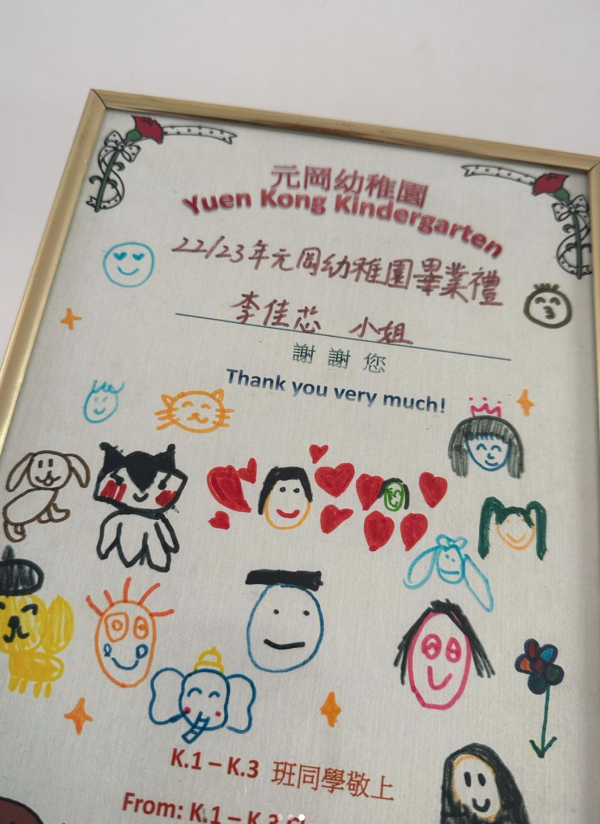 元岡幼稚園
Yuen Kong Kindergarten
22/23年元岡幼稚園畢業禮
李佳芯 小姐
謝謝您
Thank you very much!
K.1 – K.3 班同學敬上
From: K.1 – K.3